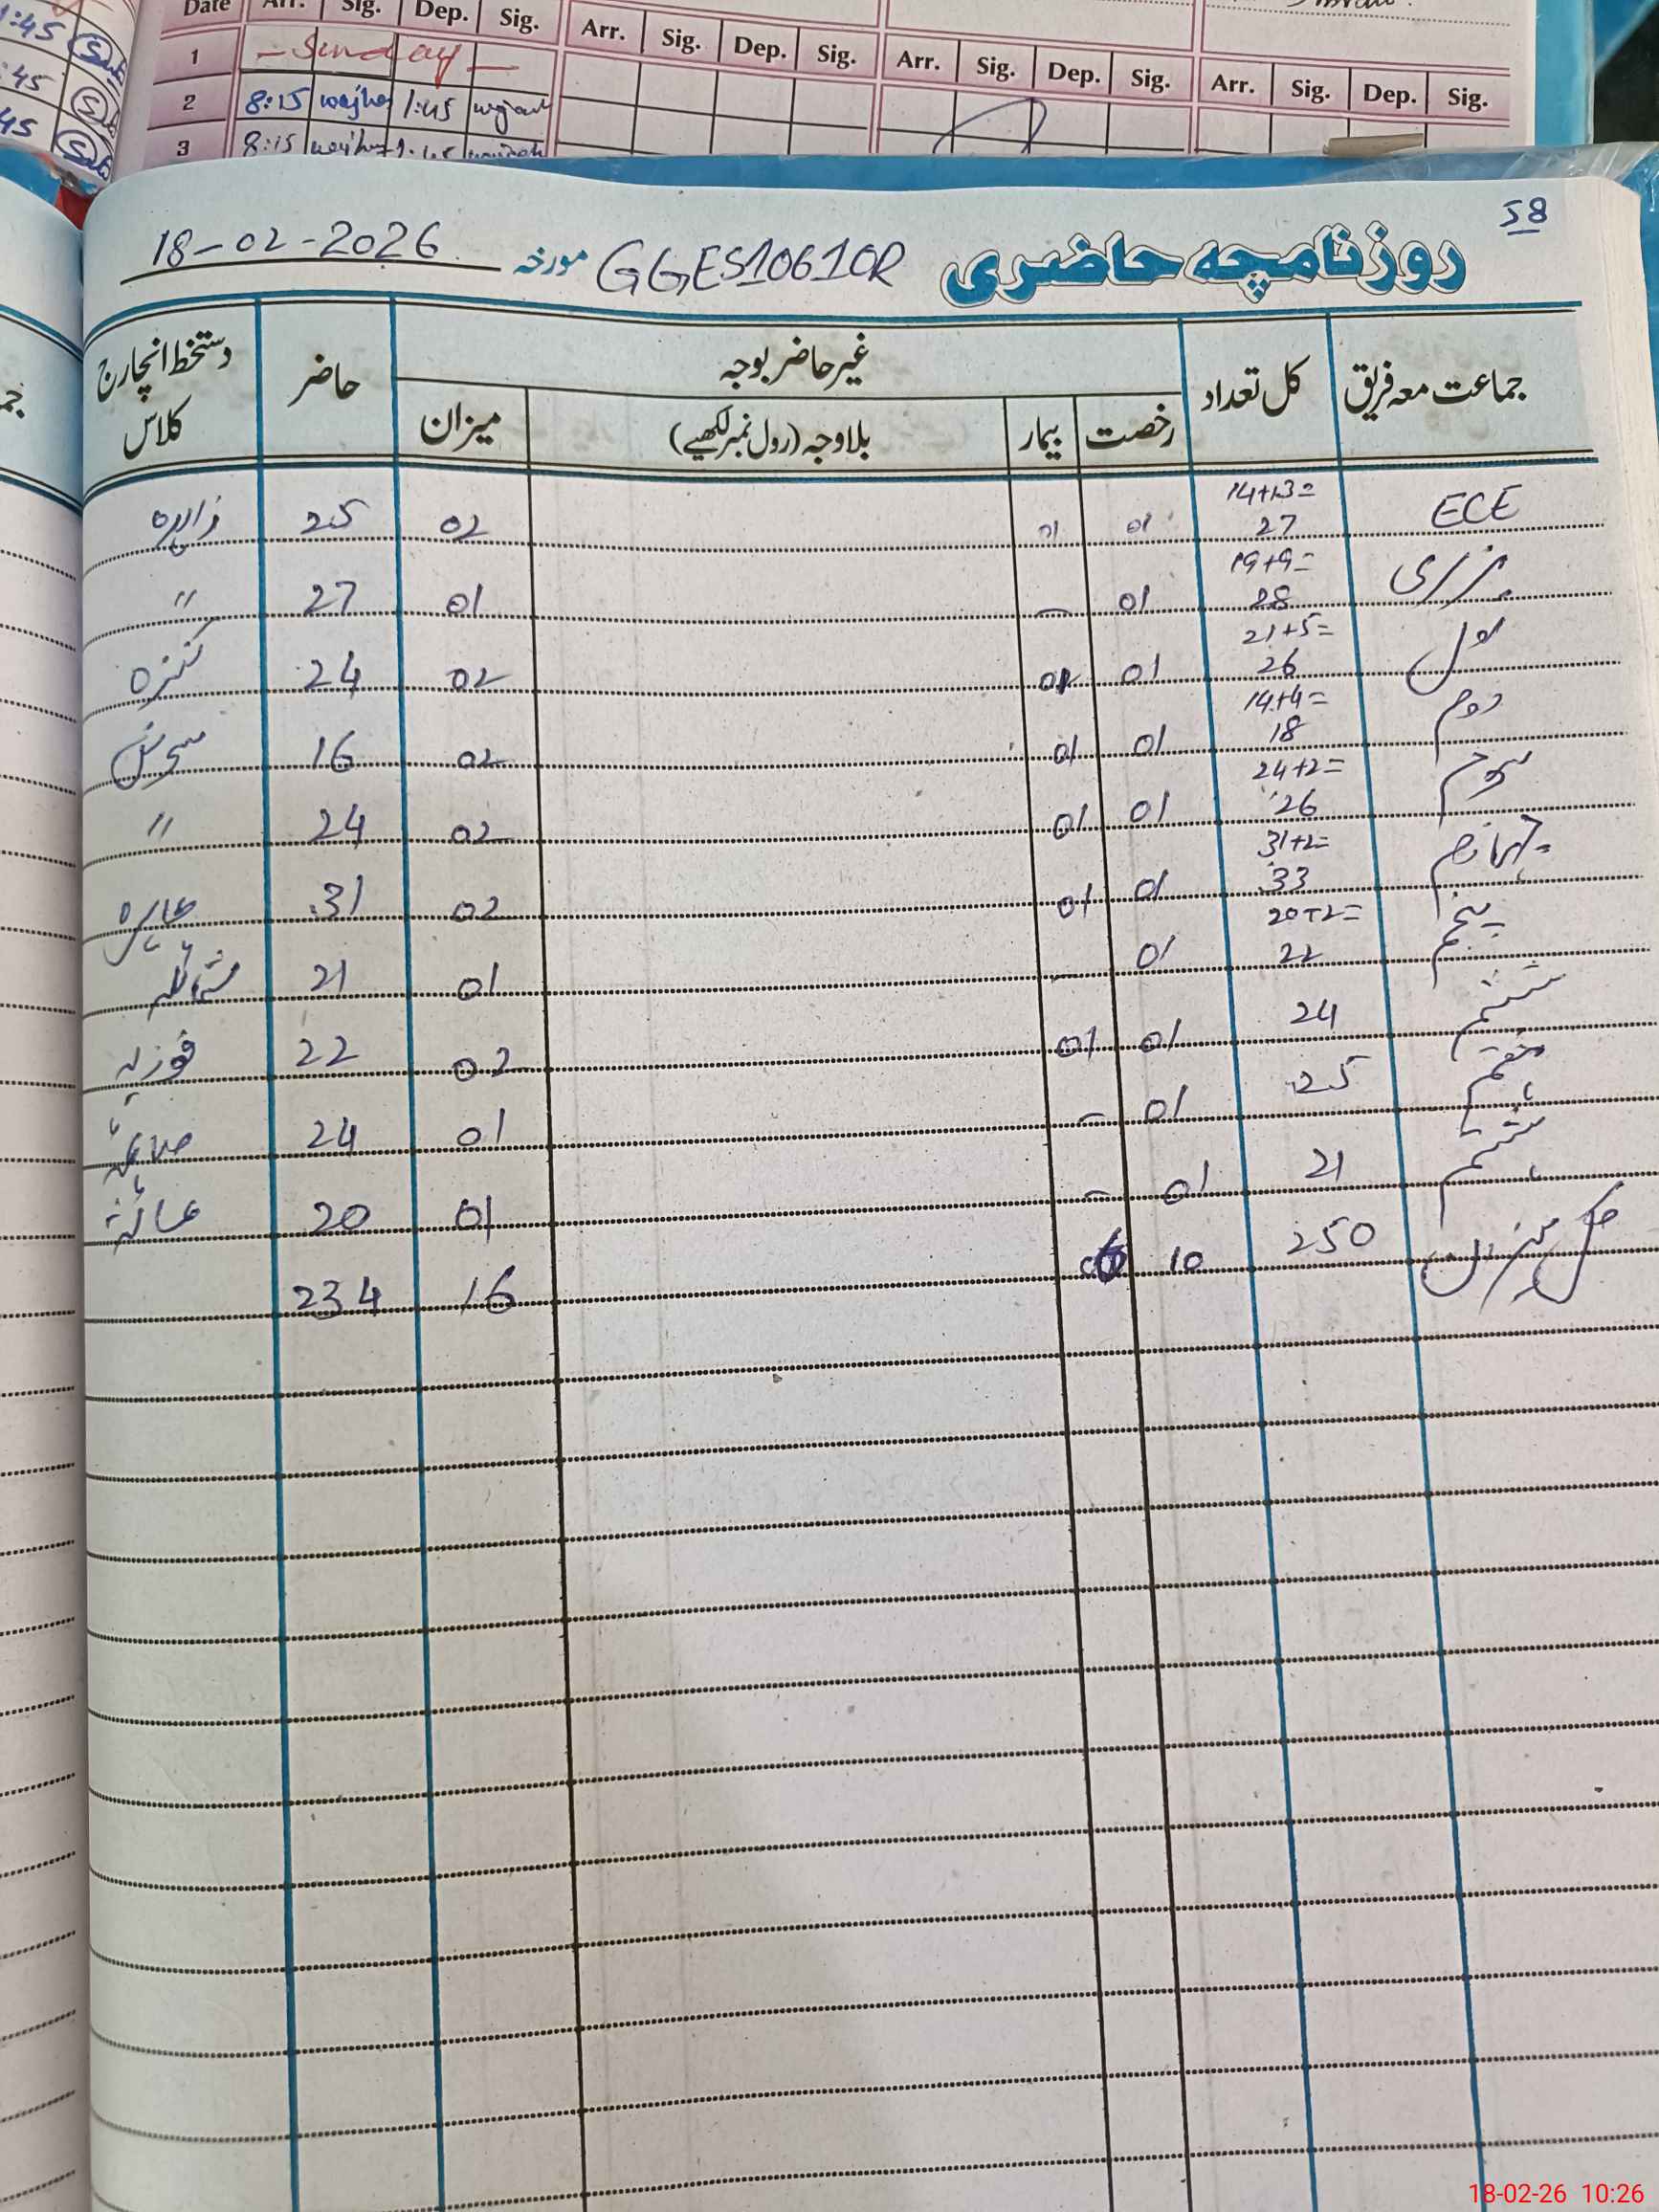 1:45
:45
45
Date Arr. Sig. Dep. Sig. Arr. Sig. Dep. Sig. Arr. Sig. Dep. Sig. Arr. Sig. Dep. Sig.
1 -Sunday-
2 8:15 1:45
3 8:15 1:45
58
روزنامچہ حاضری GGES10610R مورخہ 18-02-2026
جماعت معہ فریق کل تعداد غیر حاضر بوجہ حاضر دستخط انچارج کلاس
رخصت بیمار بلاوجہ (رول نمبر لکھیے) میزان
ECE 14+13= 27 01 01 02 25 زاہدہ
نرسری 19+9= 28 01 — 01 27 "
اول 21+5= 26 01 01 02 24 کنزہ
دوم 14+4= 18 01 01 02 16 سحرش
سوم 24+2= 26 01 01 02 24 "
چہارم 31+2= 33 01 01 02 31
پنجم 20+2= 22 01 — 01 21
ششم 24 01 01 02 22 فوزیہ
ہفتم 25 01 — 01 24 صائمہ
ہشتم 21 01 — 01 20
کل میزان 250 10 06 16 234
18-02-26 10:26